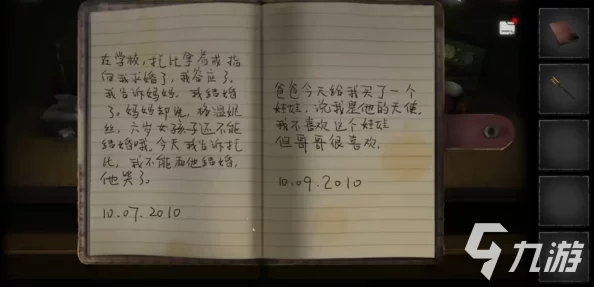 在学校，扎比拿着戒指
向我求婚了，我答应了。
我告诉妈妈，我结婚
了。妈妈却说，格温妮
丝，六岁女孩子还不能
结婚哦。今天我告诉扎
比，我不能和他结婚，
他哭了。
10.07.2010
爸爸今天给我买了一个
娃娃，说我是他的天使。
我不喜欢这个娃娃
但哥哥很喜欢。
10.09.2010
九游